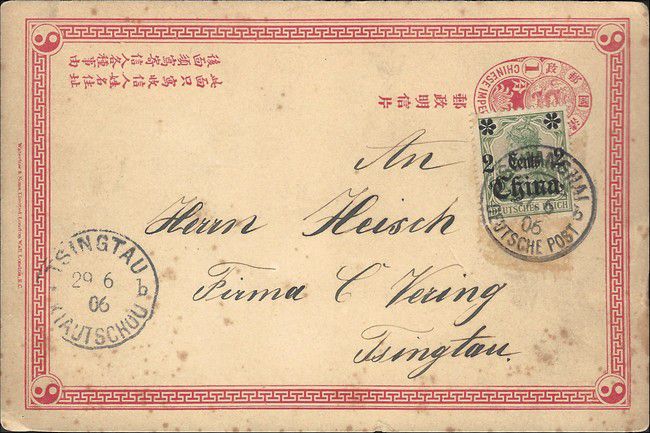 後面須寫寄信人各種事由
此面只寫收信人姓名住址
郵政明信片
國郵政
1
CHINESE IMPE
2 Cents 2
China
DEUTSCHES REICH
SHANGHAI
6
06
DEUTSCHE POST
An
Herrn Heisch
Firma C Vering
Tsingtau.
TSINGTAU
29 6
06 b
KIAUTSCHOU
Waterlow & Sons Limited, London Wall, London, E.C.